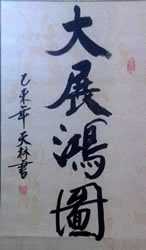 大展鴻圖
乙未年 天林書